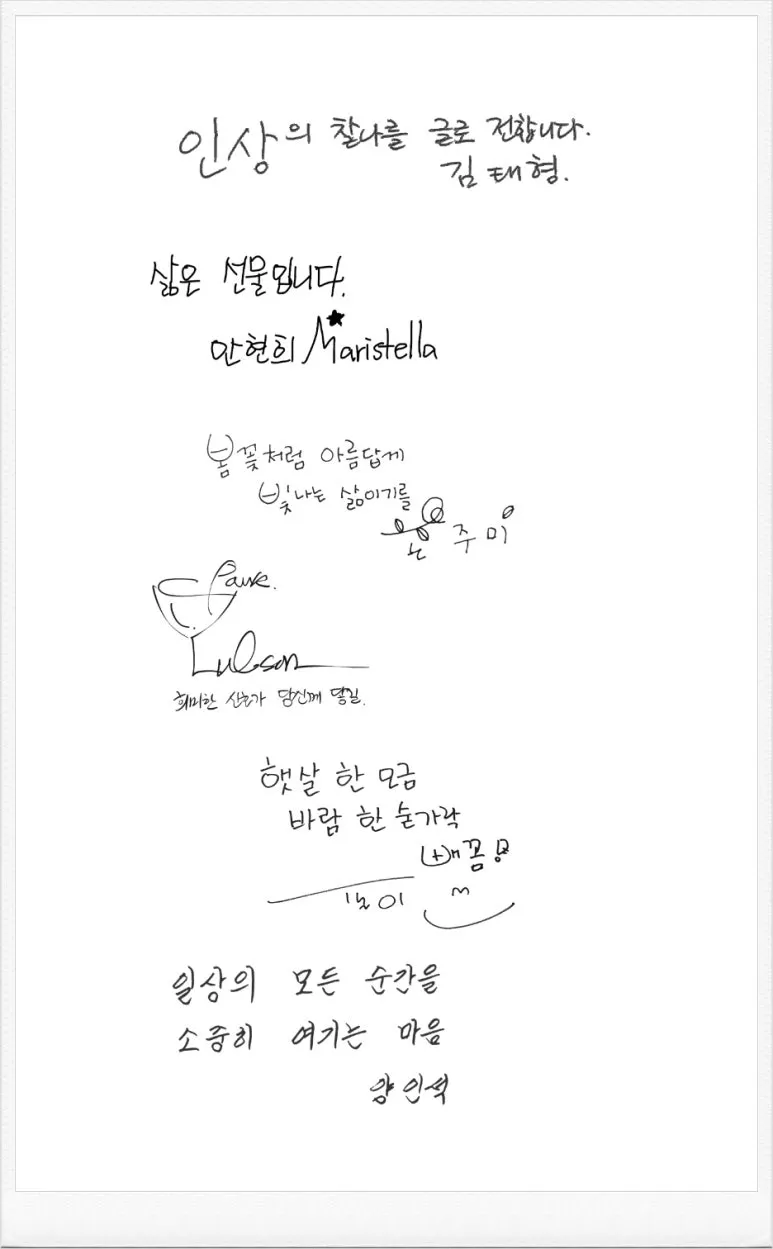 인상의 찰나를 글로 전합니다.
김태형.
삶은 선물입니다.
안현희 Maristella
봄꽃처럼 아름답게
빛나는 삶이기를
주미
Pause.
햇살 한 모금
바람 한 숟가락
배꼽
일상의 모든 순간을
소중히 여기는 마음
양인석